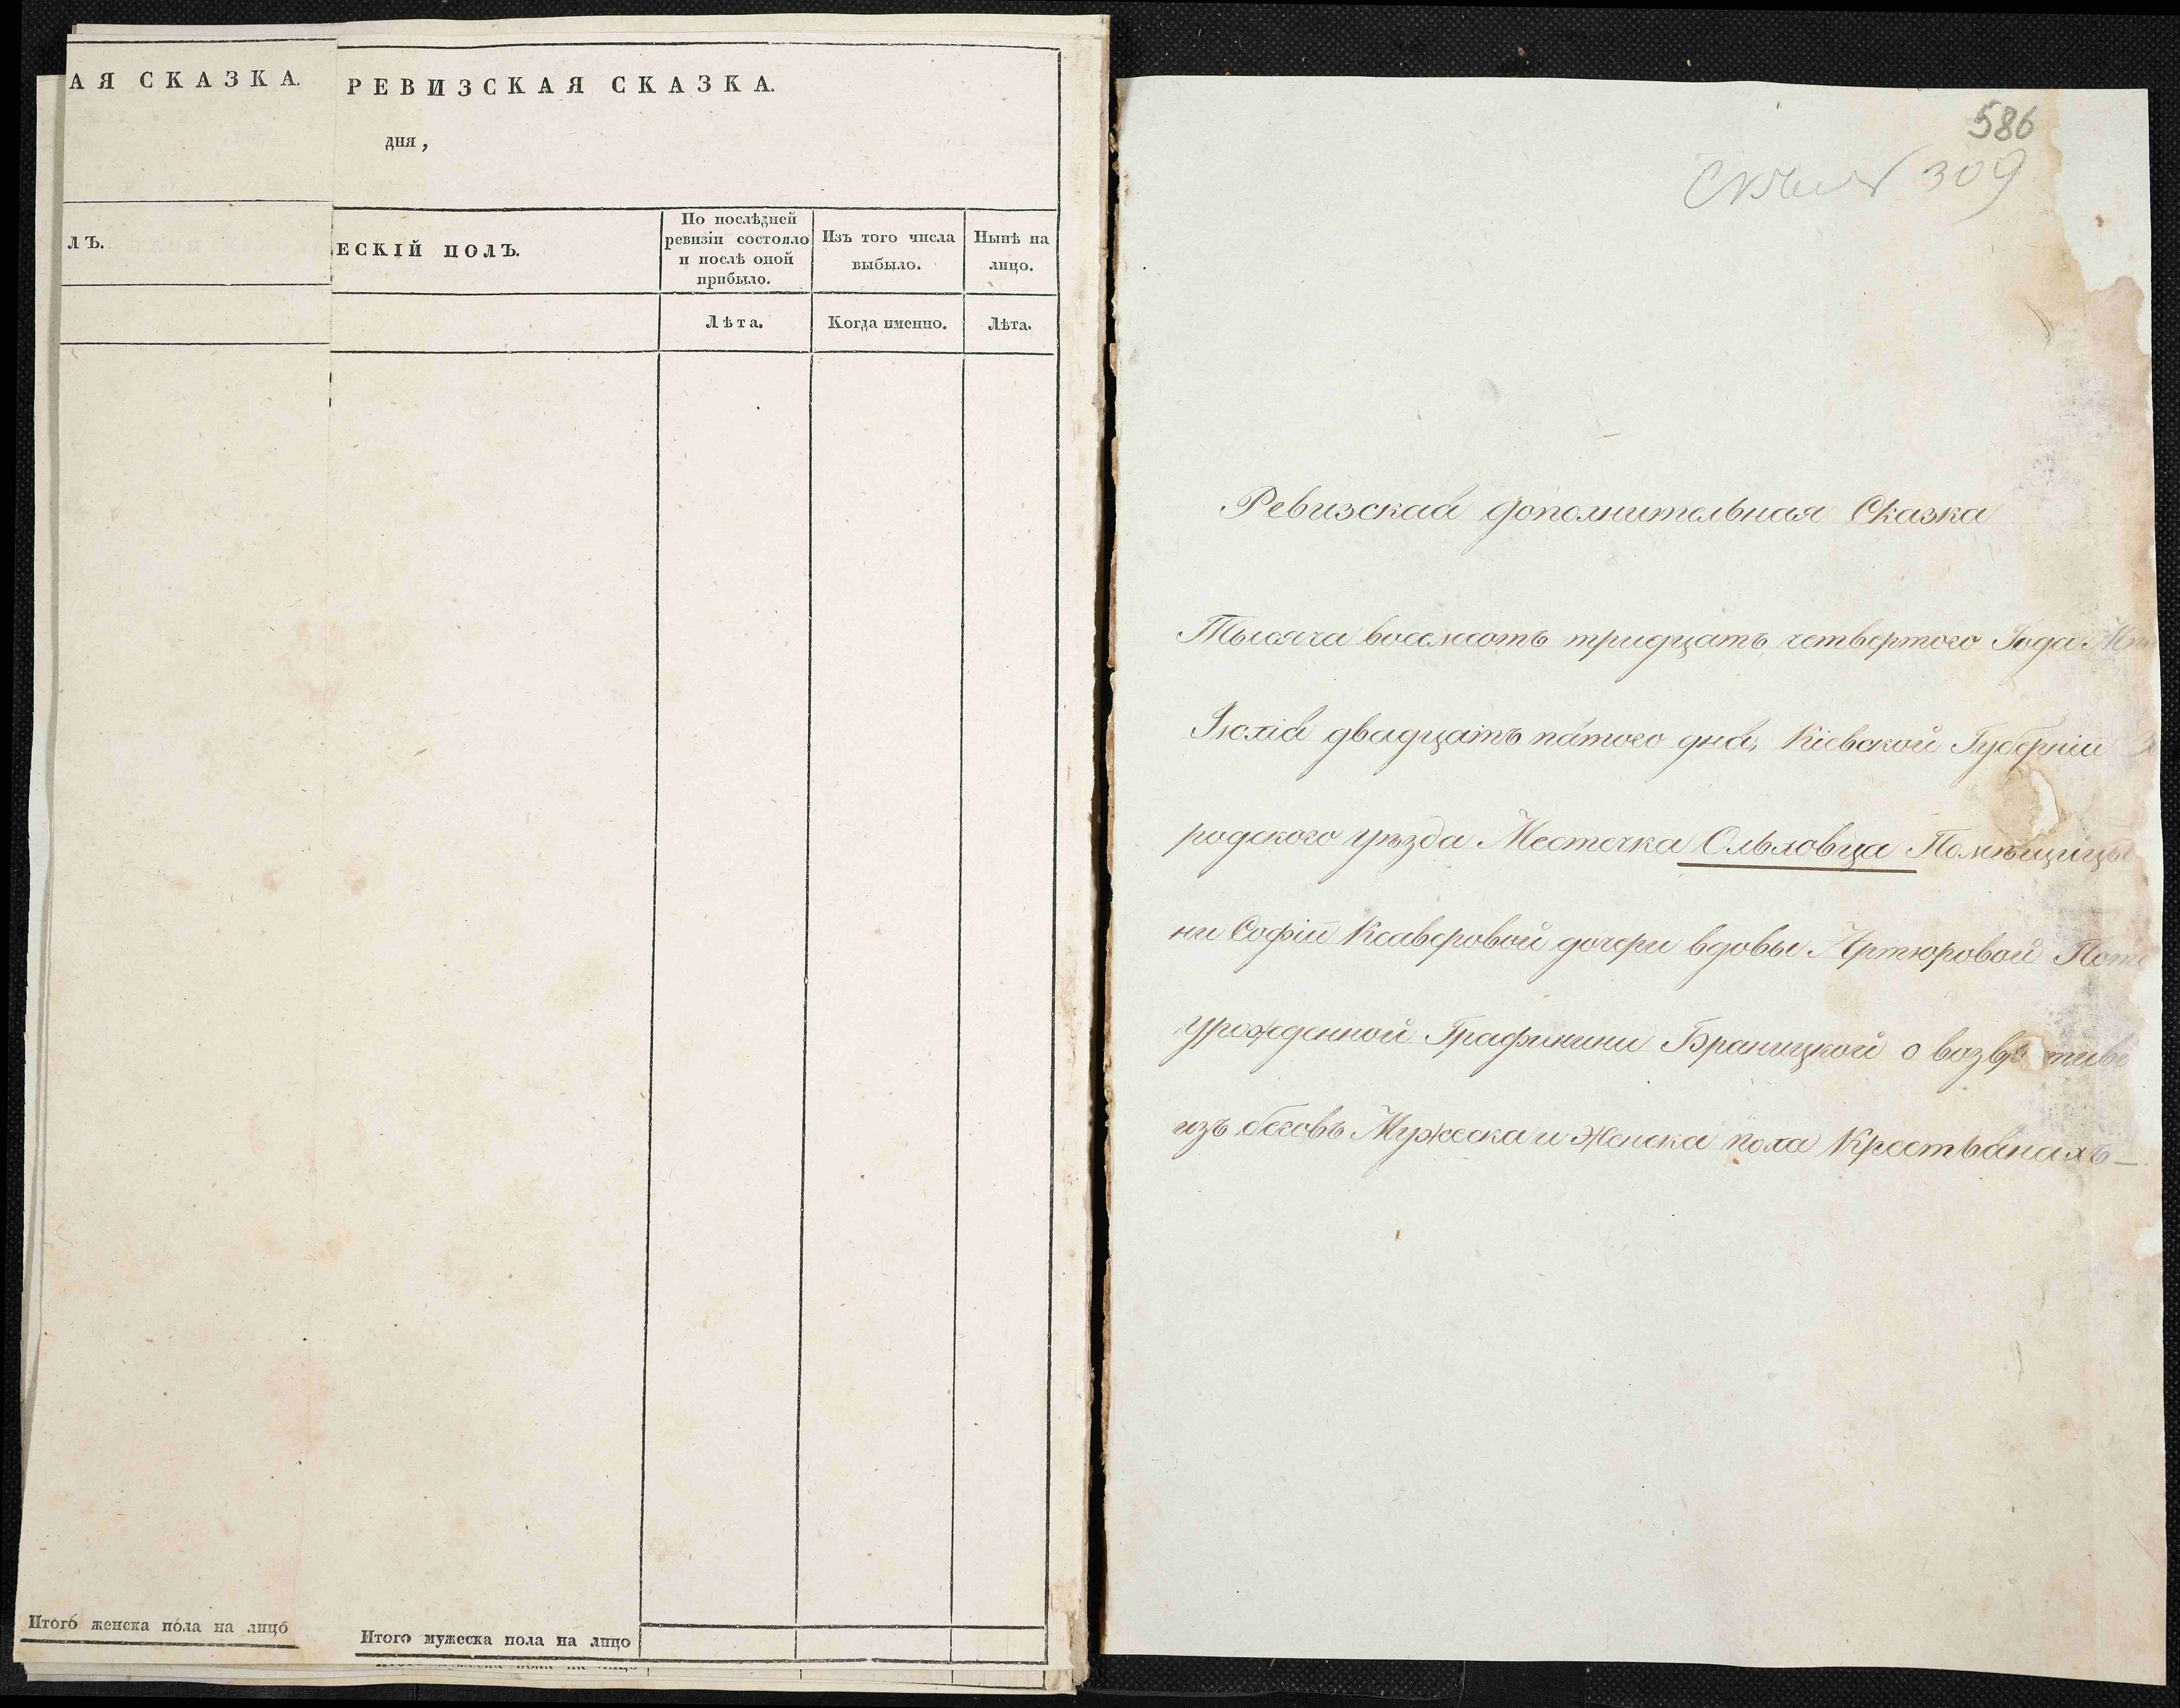 АЯ СКАЗКА.
ЛЪ.
Итого женска пола на лицо
РЕВИЗСКАЯ СКАЗКА.
дня,
ЕСКІЙ ПОЛЪ.
По послѣдней
ревизіи состояло
и послѣ оной
прибыло.
Изъ того числа
выбыло.
Нынѣ на
лицо.
Лѣта.
Когда именно.
Лѣта.
Итого мужеска пола на лицо
586
309
Ревизская дополнительная Сказка
Тысяча восемсотъ тридцать четвертого Года
Іюлія двадцать пятого дня, Кіевской Губерніи
родского уѣзда Местечка Ольховца Помѣщицы
ни Софіи Ксаверовой дочери вдовы Артюровой Пот
урожденной Графинини Браницкой о возвр
изъ бѣговъ Мужеска и Женска пола Крестьянахъ —